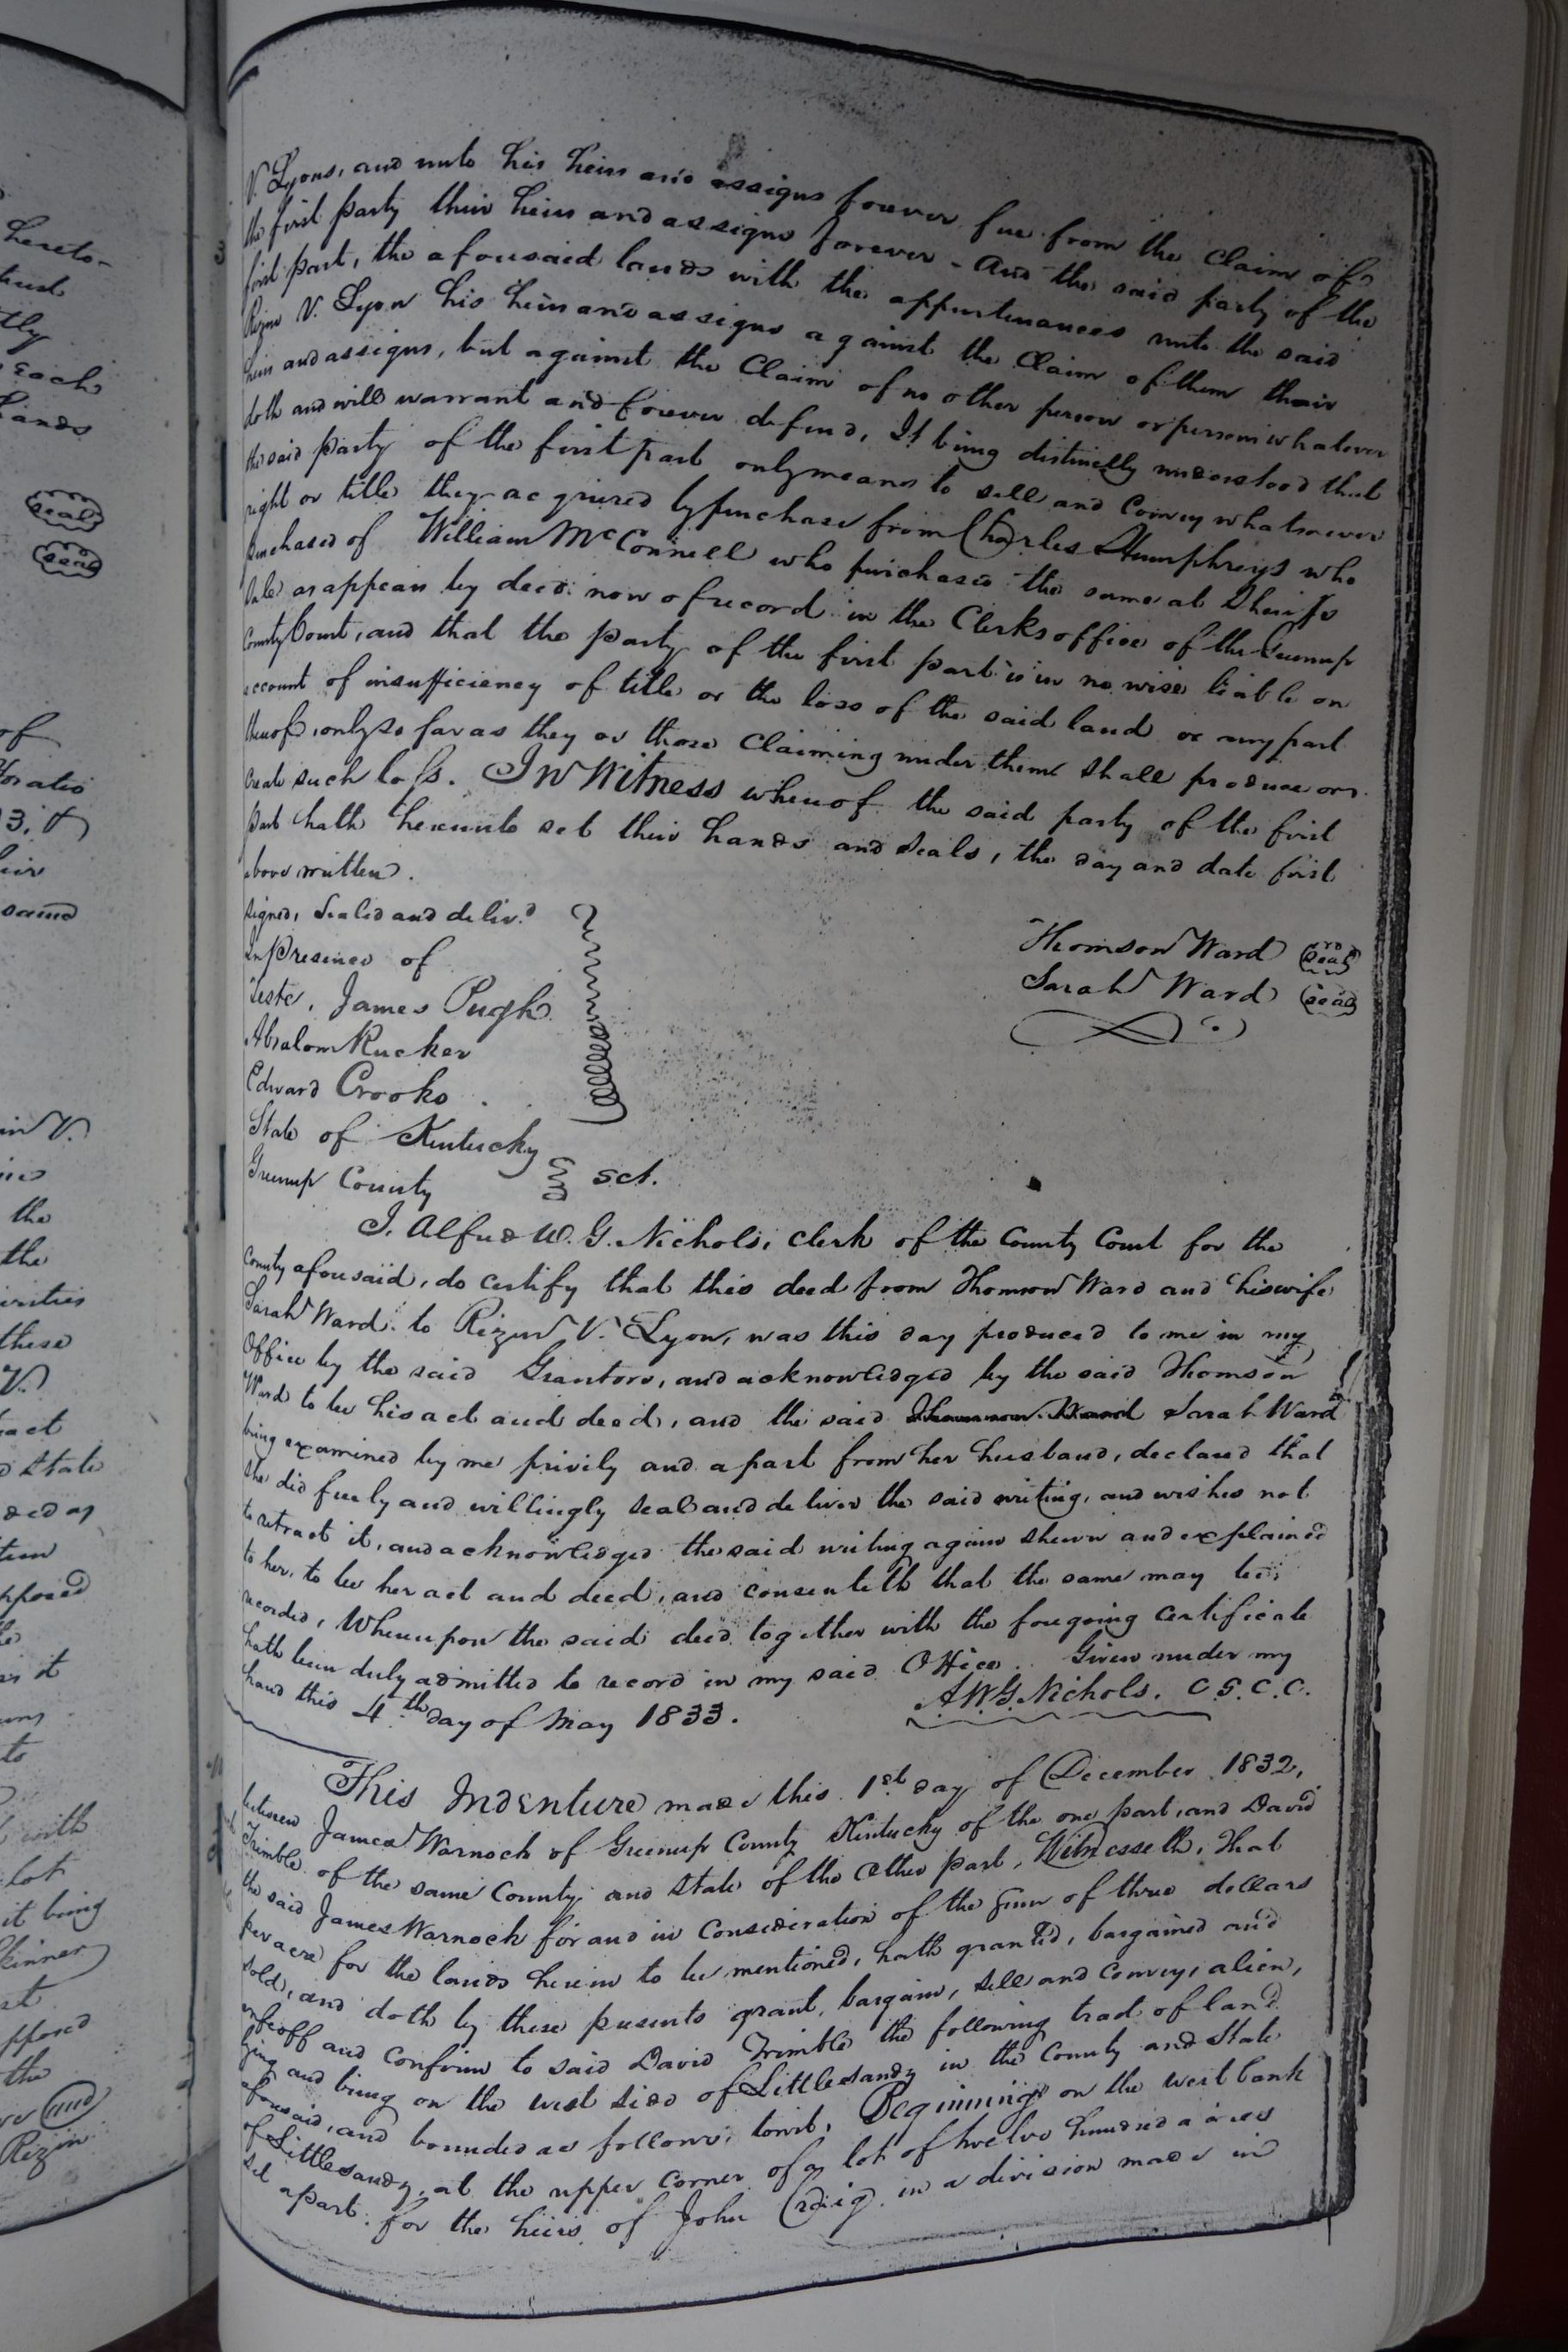 hereto-
each
hands
seal
seal
of
Horatio
same
in V.
the
the
these
V.
State
it
to
with
lot
it being
Skinner
the
and
Rizin
V. Lyons, and unto his heirs and assigns forever free from the Claim of
the first party their heirs and assigns forever - And the said party of the
first part, the aforesaid lands with the appurtenances unto the said
Rizin V. Lyon his heirs and assigns against the Claim of them their
heirs and assigns, but against the Claim of no other person or persons whatever
doth and will warrant and forever defend, It being distinctly understood that
the said party of the first part only means to sell and Convey whatsoever
right or title they acquired by purchase from Charles Humphreys who
purchased of William McConnell who purchased the same at Sheriffs
Sale as appears by deed now of record in the Clerks office of the Greenup
County Court, and that the party of the first part is in no wise liable on
account of insufficiency of title or the loss of the said land or any part
thereof, only so far as they or those Claiming under them shall produce or
create such loss. In Witness whereof the said party of the first
part hath hereunto set their hands and Seals, the day and date first
above written.
Signed, Sealed and deliv.d
In Presence of
Teste, James Pugh
Absalom Rucker
Edward Crooks.
Thomson Ward seal
Sarah Ward seal
State of Kentucky
Greenup County sct.
I. Alfred W. G. Nichols, Clerk of the County Court for the
County aforesaid, do certify that this deed from Thomson Ward and his wife
Sarah Ward to Rizin V. Lyon, was this day produced to me in my
Office by the said Grantors, and acknowledged by the said Thomson
Ward to be his act and deed, and the said Sarah Ward
being examined by me privily and apart from her husband, declared that
she did freely and willingly seal and deliver the said writing, and wishes not
to retract it, and acknowledged the said writing again shewn and explained
to her, to be her act and deed, and consenteth that the same may be
recorded, Whereupon the said deed together with the foregoing Certificate
hath been duly admitted to record in my said Office. Given under my
hand this 4th day of May 1833.
A.W.G. Nichols. C.G.C.C.
This Indenture made this 1st day of December 1832,
between James Warnock of Greenup County Kentucky of the one part, and David
Trimble of the same County and State of the Other part, Witnesseth, That
the said James Warnock for and in Consideration of the Sum of three dollars
per acre for the lands herein to be mentioned, hath granted, bargained and
sold, and doth by these presents grant, bargain, sell and Convey, alien,
enfeoff and Confirm to said David Trimble the following tract of land
lying and being on the west side of Little Sandy in the County and State
aforesaid, and bounded as follows, towit, Beginning on the west bank
of Little Sandy, at the upper corner of a lot of twelve hundred acres
set apart for the heirs of John Craig in a division made in